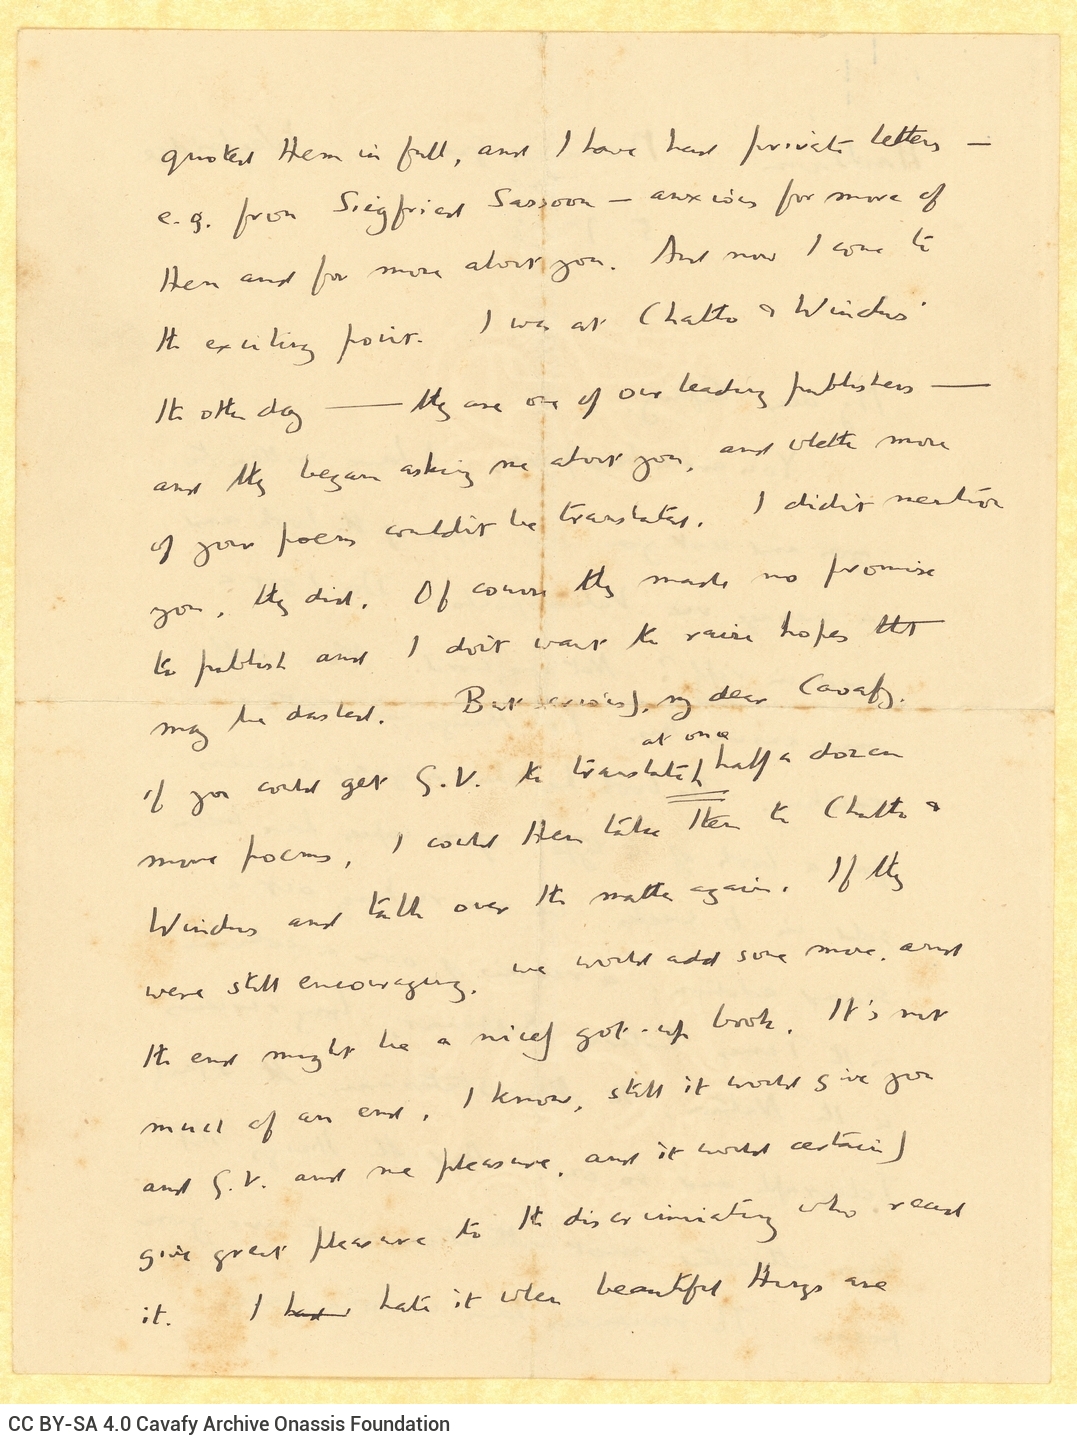 quoted them in full, and I have had private letters —
e.g. from Siegfried Sassoon — anxious for more of
them and for more about you. And now I come to
the exciting point. I was at Chatto & Windus'
the other day — they are one of our leading publishers —
and they began asking me about you, and whether more
of your poems couldn't be translated. I didn't mention
you, they did. Of course they made no promise
to publish and I don't want to raise hopes that
may be dashed. But seriously, my dear Cavafy,
if you could get G.V. to translate at once half a dozen
more poems, I could then take them to Chatto &
Windus and talk over the matter again. If they
were still encouraging, we would add some more, and
the end might be a nicely got-up book. It's not
much of an end, I know, still it would give you
and G.V. and me pleasure, and it would certainly
give great pleasure to the discriminating who read
it. I had hate it when beautiful things are
CC BY-SA 4.0 Cavafy Archive Onassis Foundation